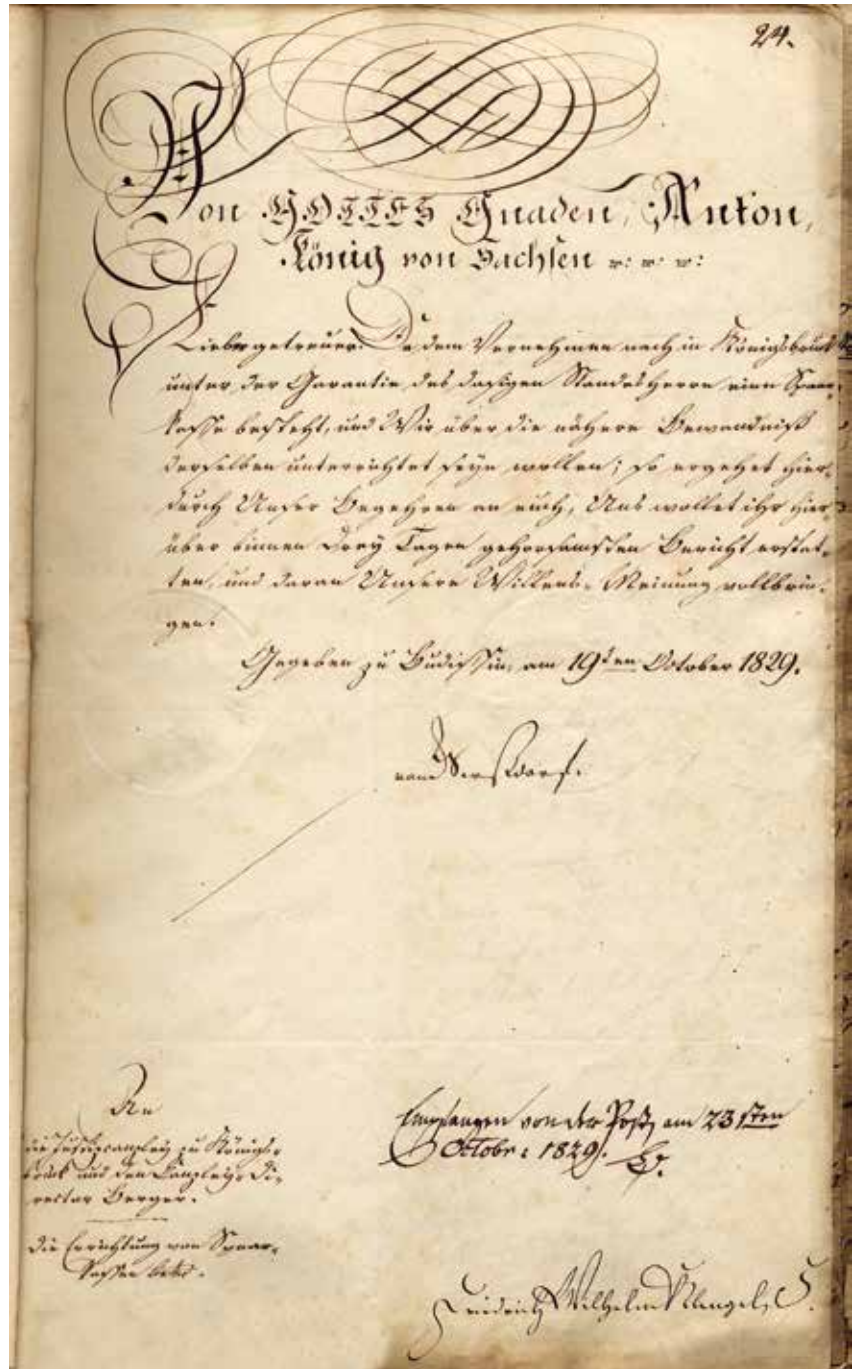 24.
Von GOTTES Gnaden, Anton,
König von Sachsen
Lieber getreuer. Da dem Vernehmen nach in Königsbrück
unter der Garantie des dasigen Standesherrn eine Spaar-
kasse besteht, und Wir über die nähere Bewandniß
derselben unterrichtet seyn wollen; so ergehet hier-
durch Unser Begehren an euch, Uns wollet ihr hier-
über binnen Drey Tagen gehorsamsten Bericht erstat-
ten, und daran Unsere Willens-Meinung vollbrin-
gen.
Gegeben zu Budissin, am 19ten October 1829.
von Gersdorf.
An
die Justizcanzley zu Königs-
brück und den Canzley-Di-
rector Berger.
Die Errichtung von Spaar-
kassen betr.
Empfangen von der Post, am 23sten
Octobr: 1829.
Friedrich Wilhelm